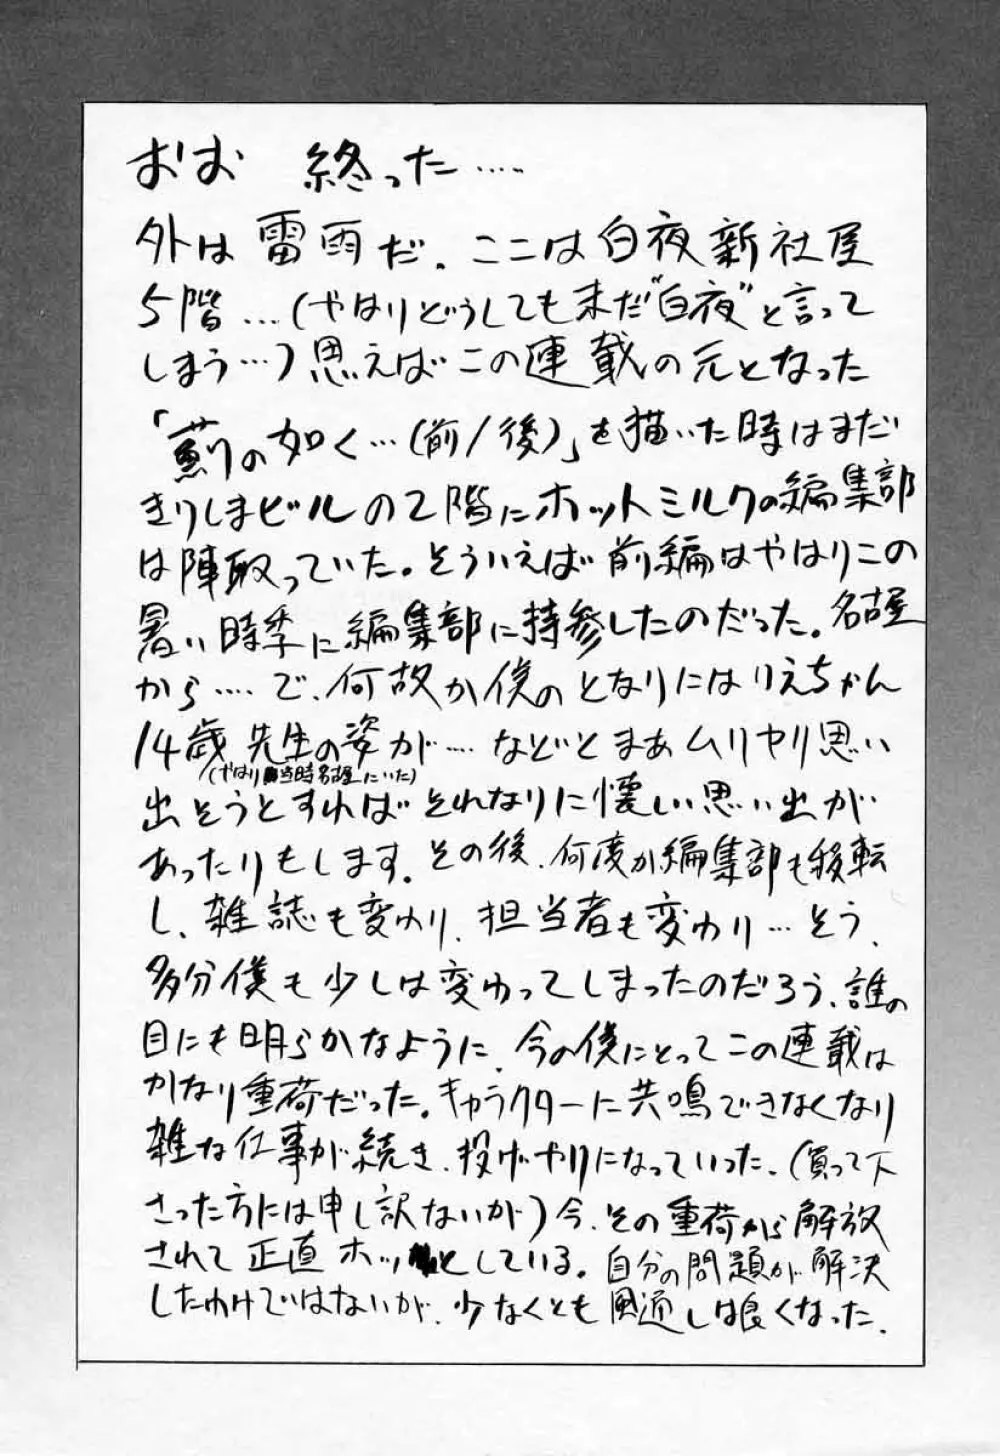 おお 終った……
外は雷雨だ。ここは白夜新社屋
5階…(やはりどうしても未だ"白夜"と言って
しまう…)思えばこの連載の元となった
「薊の如く…(前/後)」を描いた時はまだ
きりしまビルの2階にホットミルクの編集部
は陣取っていた。そういえば前編はやはりこの
暑い時季に編集部に持参したのだった。名古屋
から……で、何故か僕のとなりにはりえちゃん
14歳先生の姿が……などとまあムリヤリ思い
(やはり当時名古屋にいた)
出そうとすればそれなりに懐しい思い出が
あったりもします。その後、何度か編集部も移転
し、雑誌も変わり、担当者も変わり…そう、
多分僕も少しは変わってしまったのだろう、誰の
目にも明らかなように、今の僕にとってこの連載は
かなり重荷だった。キャラクターに共鳴できなくなり
雑な仕事が続き、投げやりになっていった。(買って下
さった方には申し訳ないが)今、その重荷から解放
されて正直ホッとしている。自分の問題が解決
したわけではないが、少なくとも風通しは良くなった。